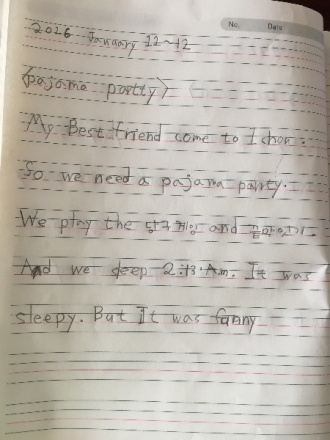 No. Date
2026 January 12~12
<pajama partty>
My Best friend come to Ichon.
So we need a pajama party.
We play the 당구게임 and
And we sleep 2:13 A.m. It was
sleepy. But It was funny